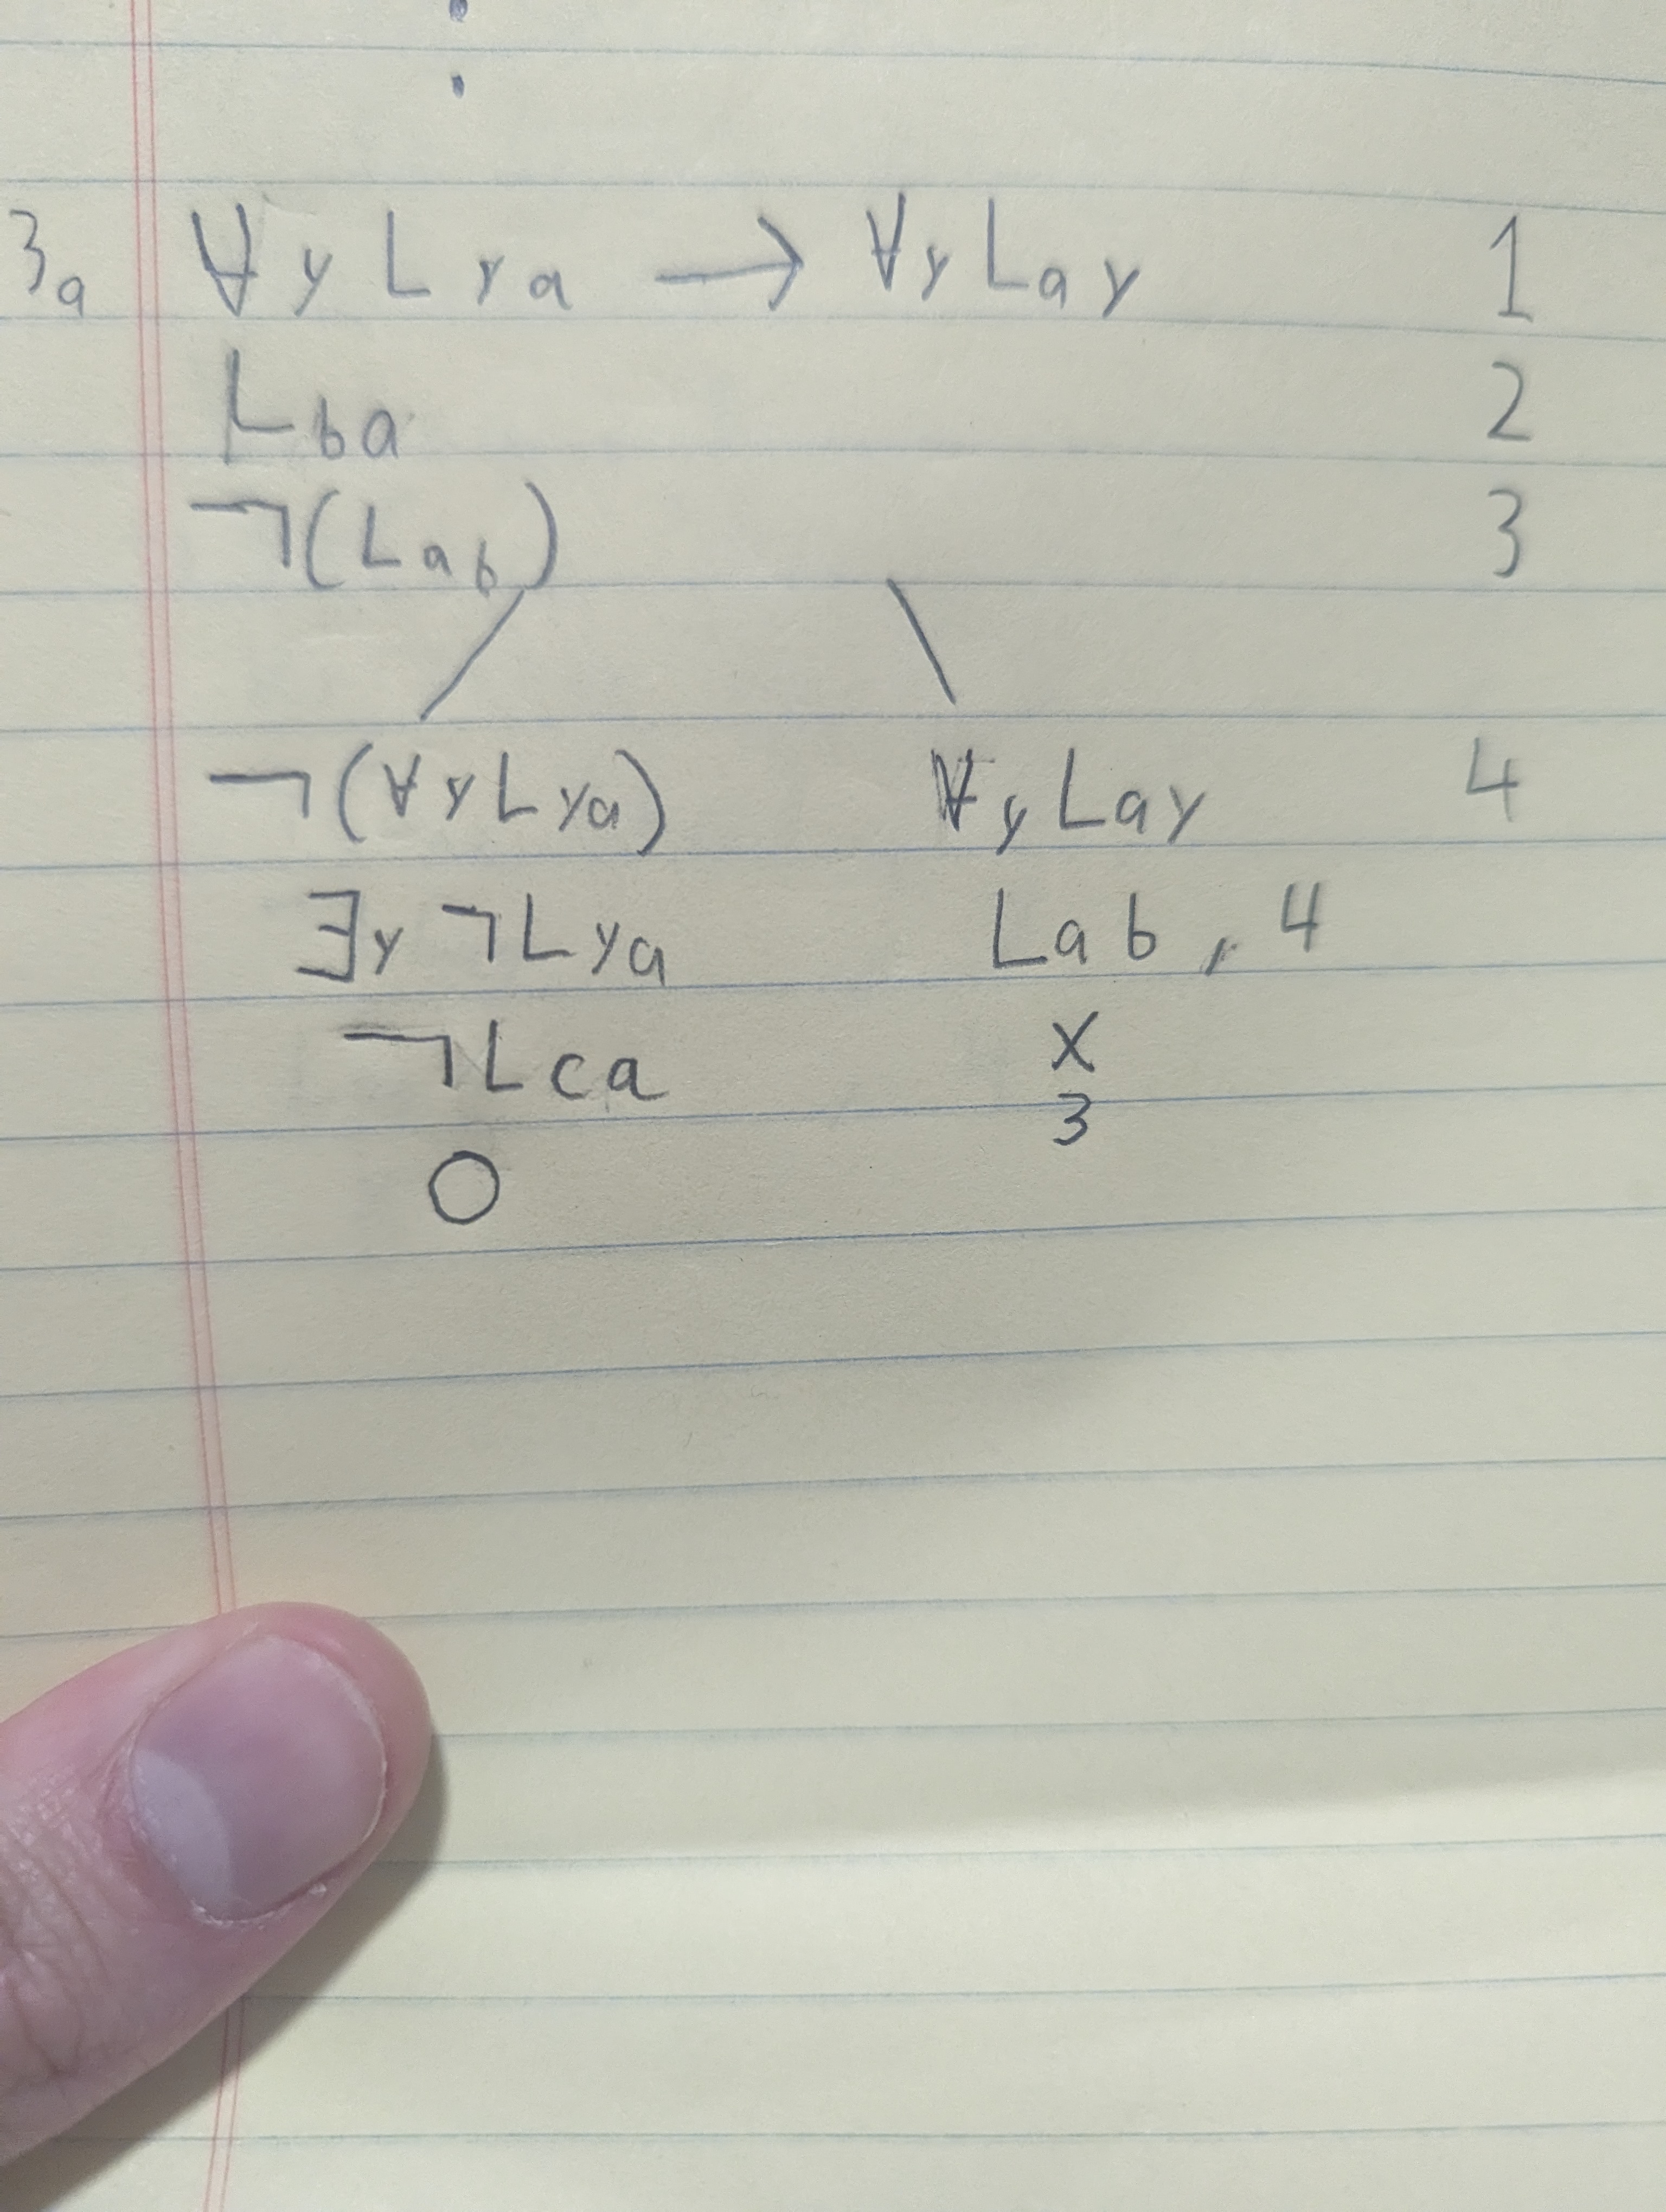 3a ∀y Lya → ∀y Lay 1
Lba 2
¬(Lab) 3
¬(∀y Lya) ∀y Lay 4
∃y ¬Lya Lab, 4
¬Lca X
3
O